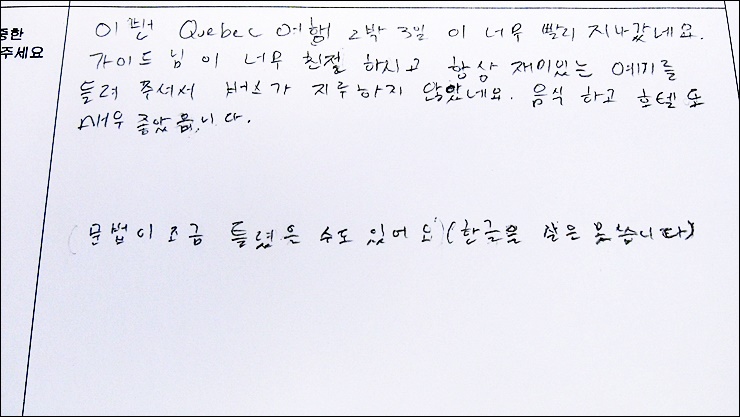 중한
주세요
이번 Quebec 여행 2박 3일 이 너무 빨리 지나갔네요.
가이드 님 이 너무 친절 하시고 항상 재미있는 얘기를
들려 주셔서 버스가 지루하지 않았네요. 음식 하고 호텔 도
매우 좋았읍니다.
(문법이 조금 틀렸을 수도 있어요)(한글을 잘은 못씁니다)